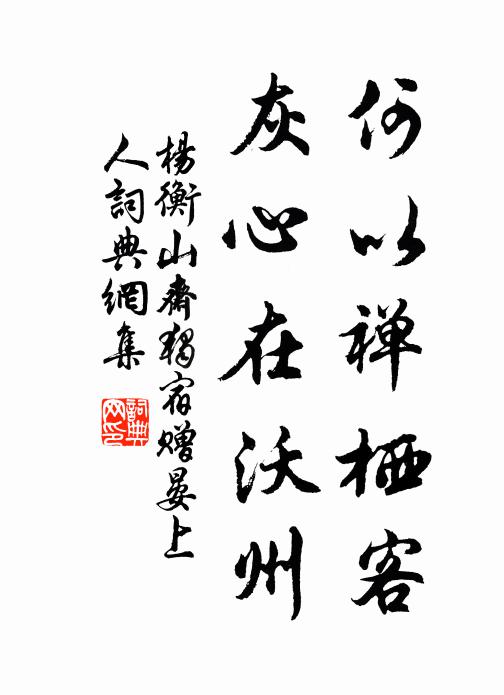 何以禅栖客
灰心在沃州
楊衡山齋獨宿贈晏上
人詞典網集
詞典
网印